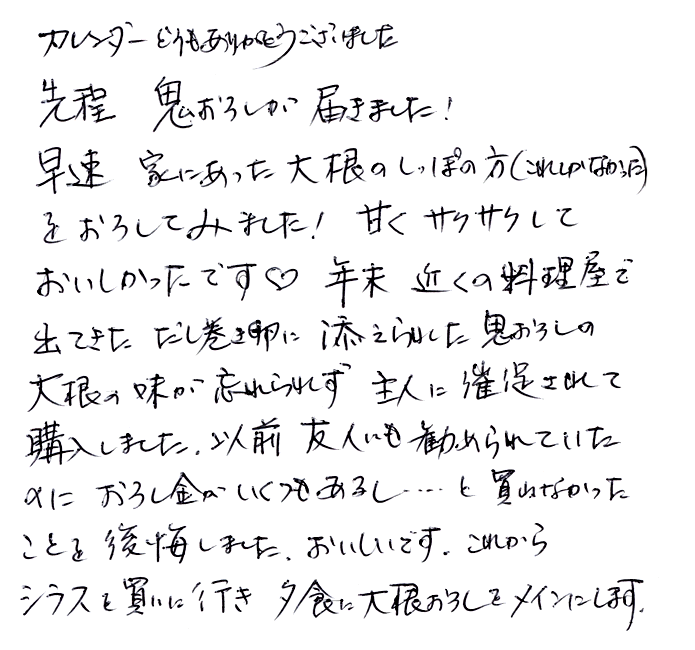 カレンダーどうもありがとうございました
先程 鬼おろしが届きました!
早速 家にあった大根のしっぽの方(これしかなかった)
をおろしてみました! 甘くサクサクして
おいしかったです♡ 年末 近くの料理屋で
出てきた だし巻き卵に 添えられた鬼おろしの
大根の味が忘れられず 主人に催促されて
購入しました。以前 友人にも勧められていた
のに おろし金がいくつもあるし‥‥と買わなかった
ことを後悔しました。おいしいです。これから
シラスを買いに行き 夕食に大根おろしをメインにします。